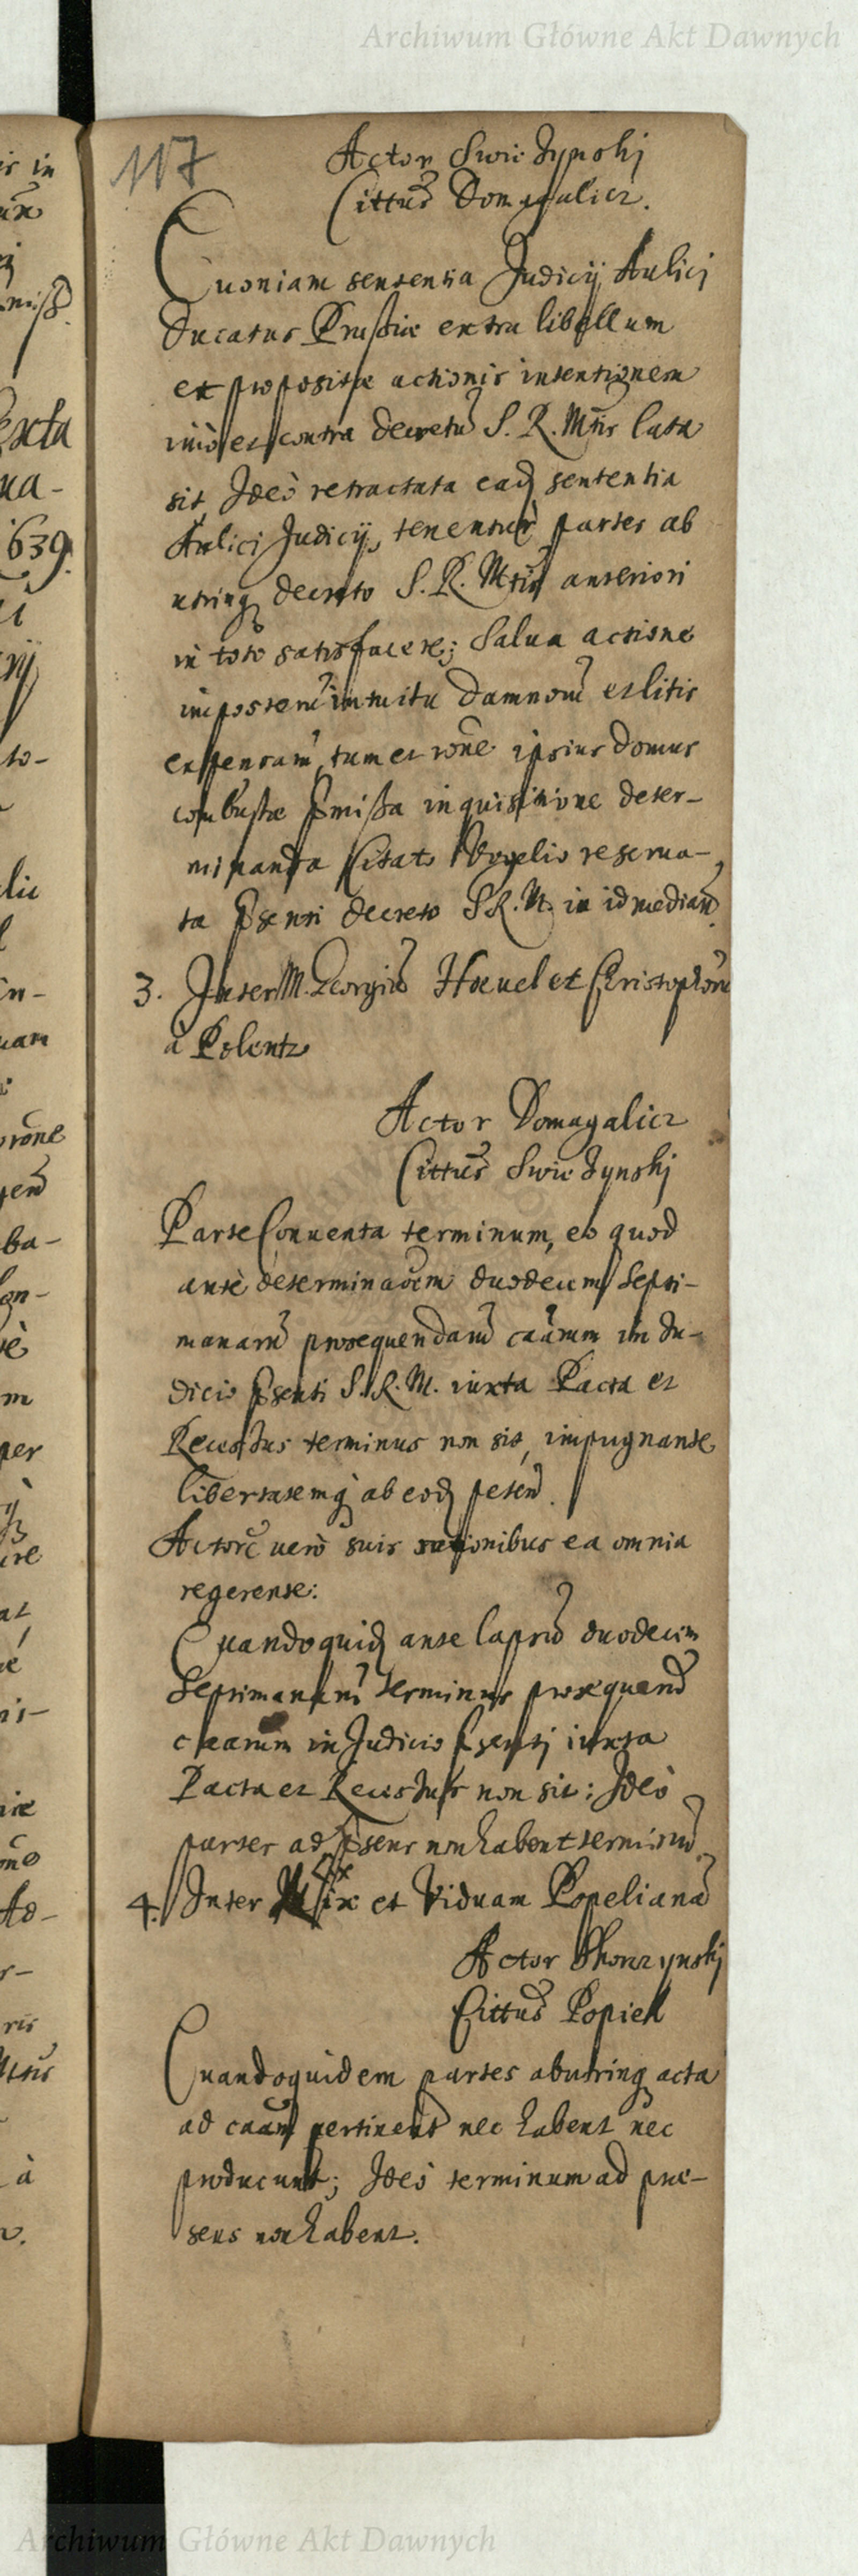 Archiwum Główne Akt Dawnych
117
Actor Swie Zynski
Cittus Domagalicz.
Quoniam sententia Judicij Aulici
Ducatus Prussiæ extra libellum
et propositæ actionis intentionem
imò et contra decretũ S. R. Mtis lata
sit, Ideò retractata eadẽ sententia
Aulici Judicij, tenentur partes ab
utrinq decreto S. R. Mtis anteriori
in toto satisfacere; Salua actione
imposterũ intuitu damnorũ et litis
expensarũ, tum et rõne ipsius domus
combustæ p̃missa inquisitione deter-
minanda Citato Vogelio reserua-
ta p̃senti decreto S.R.M. in id mediañ.
3. Inter M. Georgiũ Hœuel et Christophorũ
à Polentz
Actor Domagalicz
Cittus Swie Zynski
Parte Conuenta terminum, eo quod
ante determinaõem duodecim Septi-
manarũ prosequendarũ caũrum in Ju-
dicio p̃senti S. R. M. iuxta Pacta et
Recessus terminus non sit, impugnante
libertatemq ab eodẽ peteñ.
Actore verò suis rationibus ea omnia
regerente:
Quandoquidẽ ante lapsũ duodecim
Septimanarũ terminus prosequend
caarum in Judicio p̃senti iuxta
Pacta et Recessus non sit: Ideò
partes ad p̃sens non habent terminũ
4. Inter et Viduam Popelianã
Actor Skorzynski
Cittus Popiel
Quandoquidem partes abutrinq acta
ad caũam pertinentia nec habent nec
producunt; Ideò terminum ad præ-
sens non habent.
Archiwum Główne Akt Dawnych